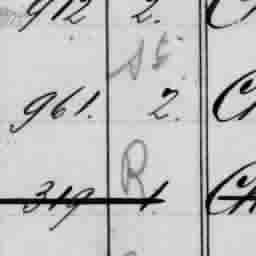 912 2.
St.
961. 2.
R
319 1.